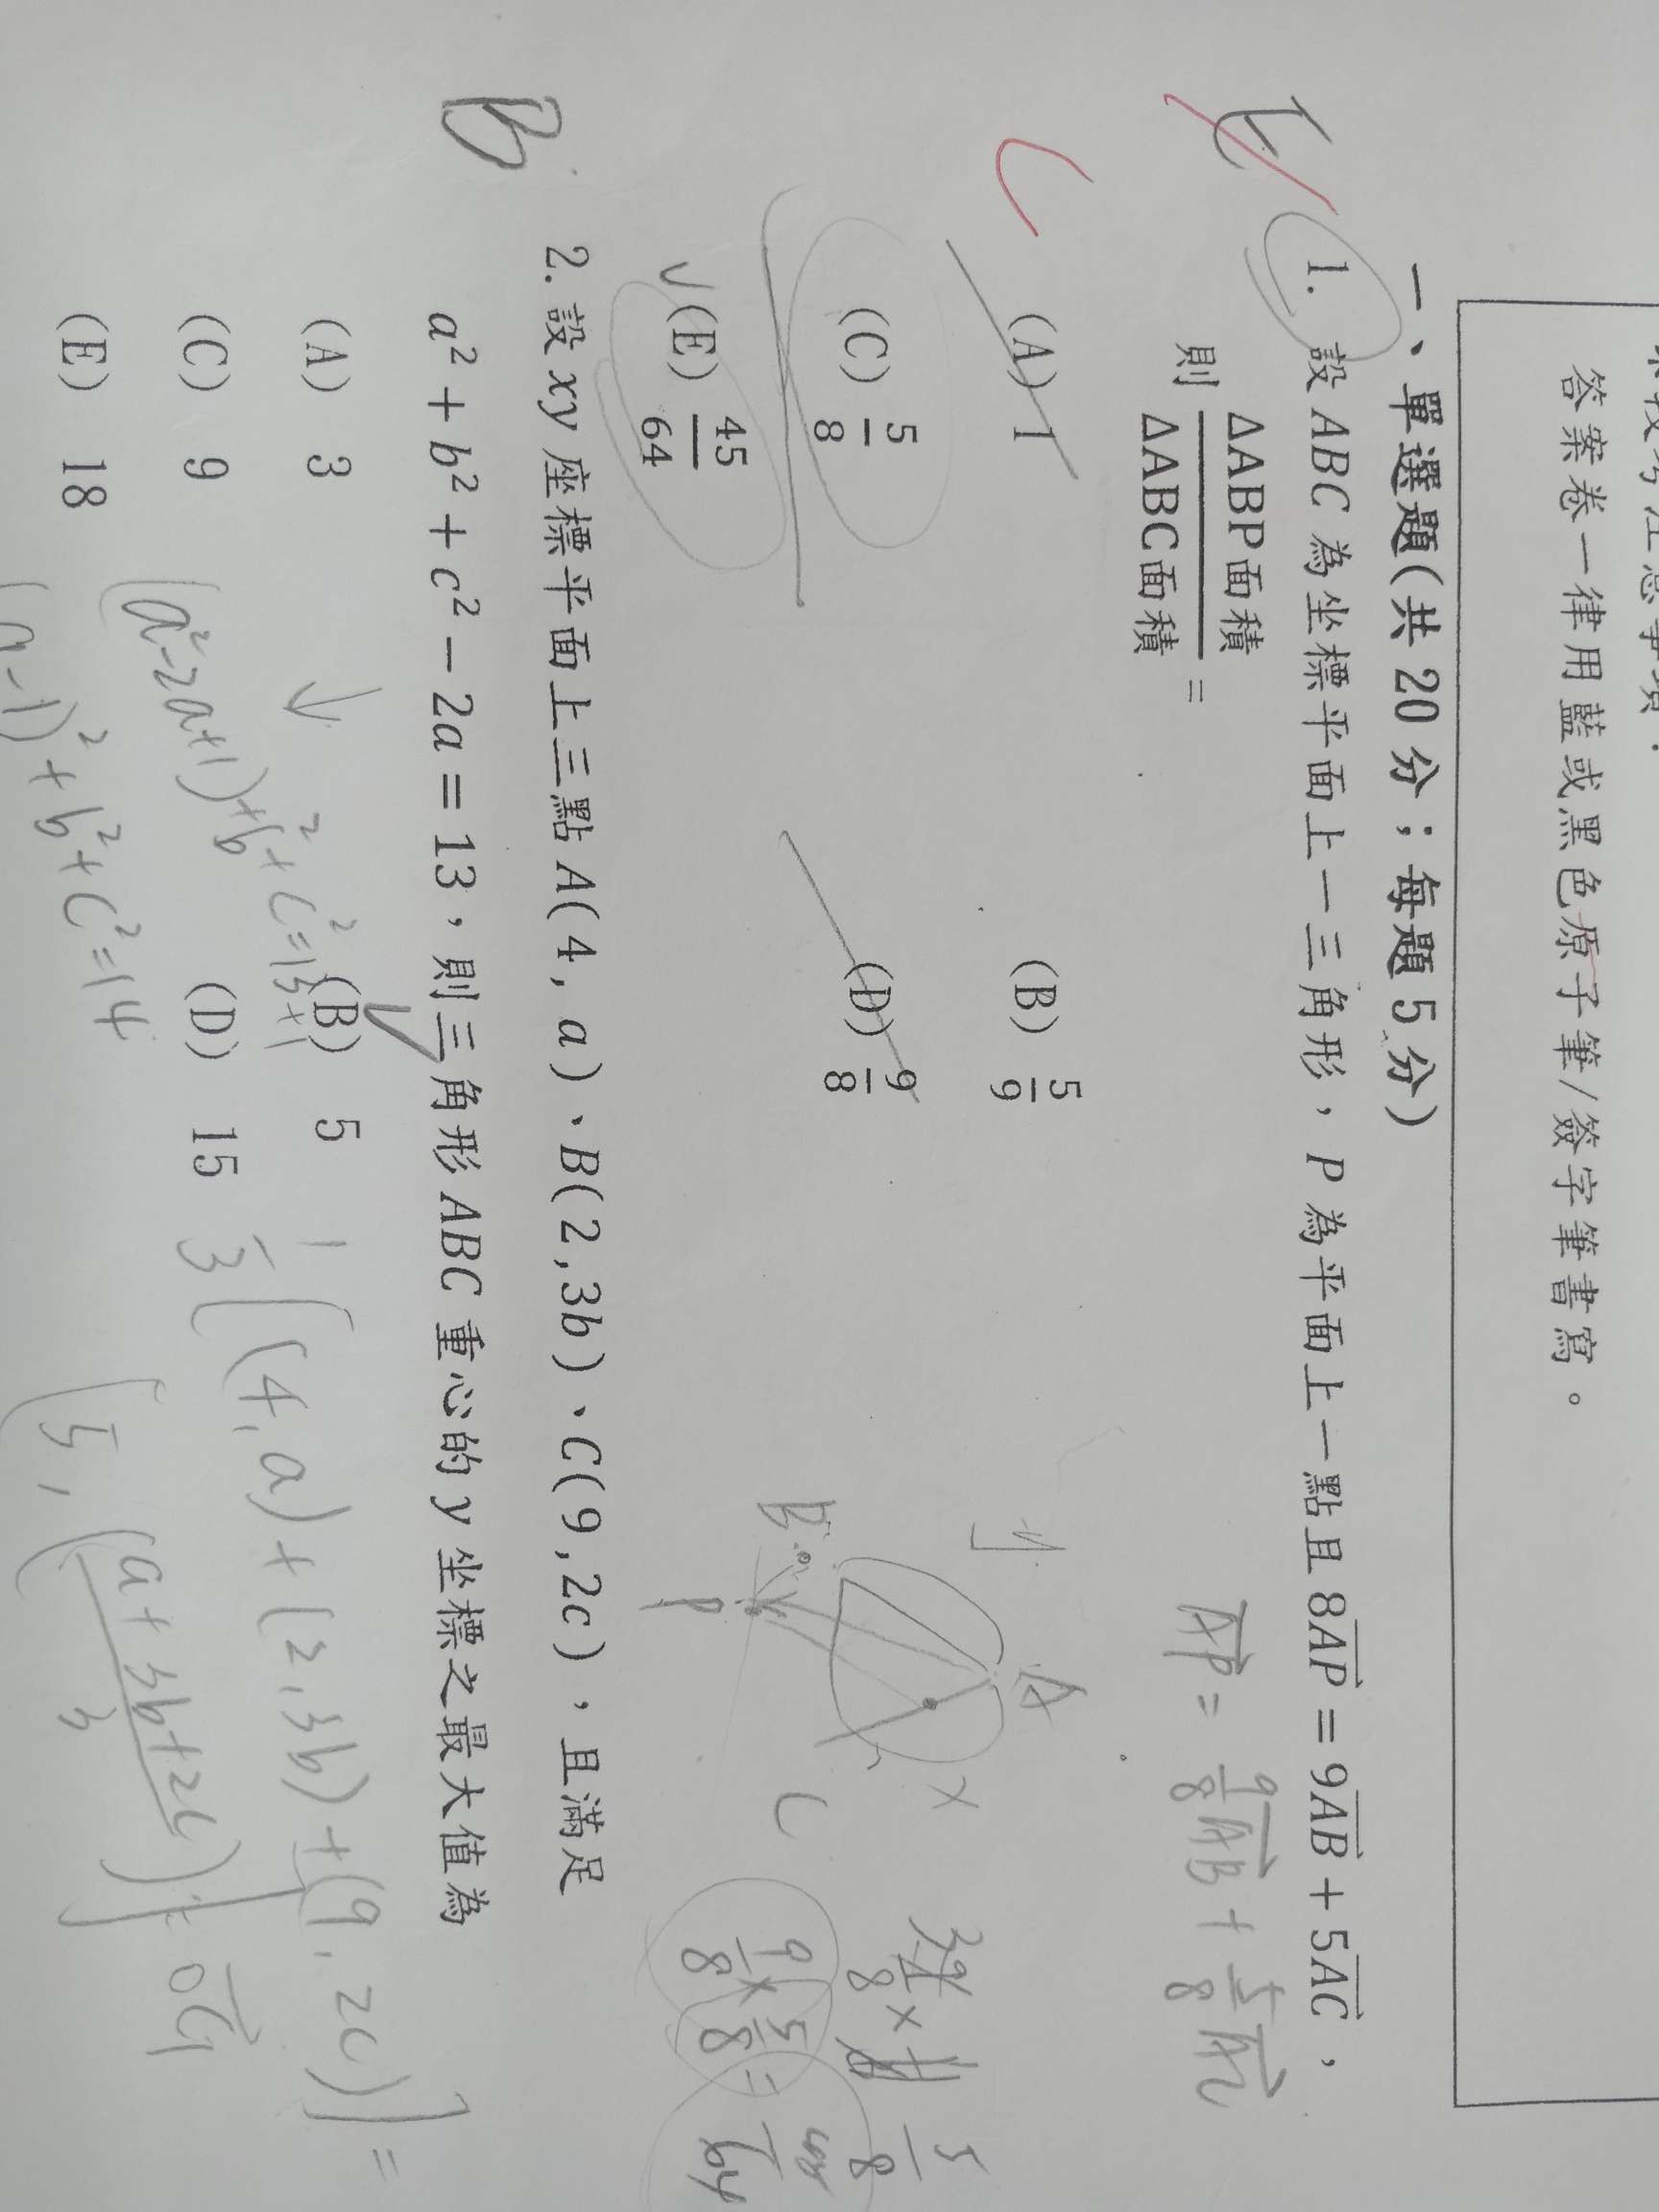 答案卷一律用藍或黑色原子筆/簽字筆書寫。
一、單選題(共 20 分；每題 5 分)
1. 設 ABC 為坐標平面上一三角形，P 為平面上一點且 8AP = 9AB + 5AC，
則 ΔABP面積/ΔABC面積 =
(A) 1 (B) 5/9
(C) 5/8 (D) 9/8
(E) 45/64
AP = 9/8 AB + 5/8 AC
A
B
P
C
9/8 × 5/8 =
5/8
C
2. 設 xy 座標平面上三點 A(4, a)、B(2,3b)、C(9,2c)，且滿足
B
a² + b² + c² − 2a = 13，則三角形 ABC 重心的 y 坐標之最大值為
(A) 3 (B) 5
(C) 9 (D) 15
(E) 18
(a²-2a+1)+b²+c²=13+1
(a-1)²+b²+c²=14
1/3 [(4,a)+(2,3b)+(9,2c)] =
[5, (a+3b+2c)/3] = OG